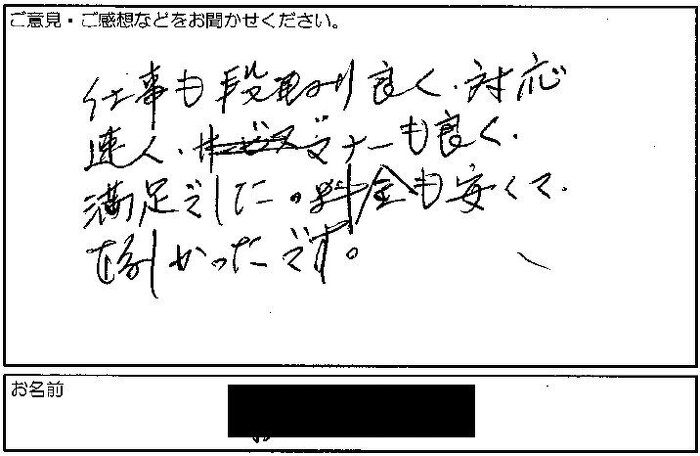 ご意見・ご感想などをお聞かせください。
仕事も段取り良く、対応
達人、マナーも良く、
満足でした。料金も安くて、
助かったです。
お名前